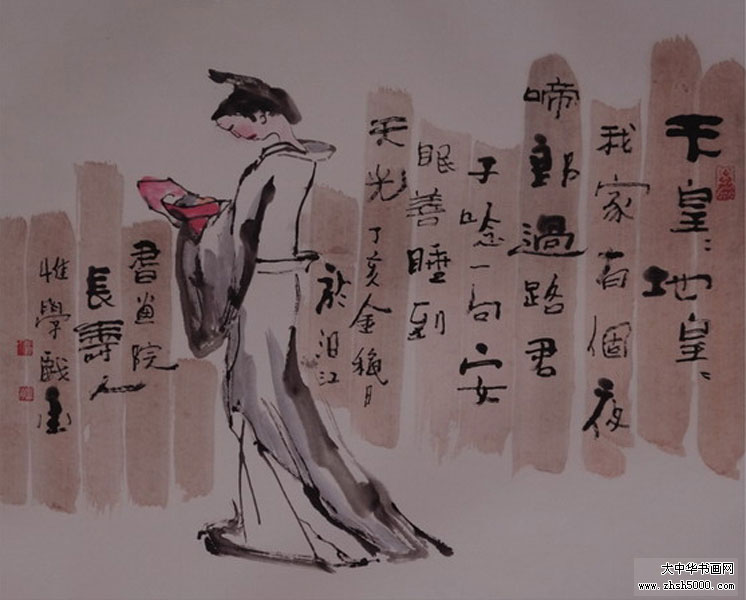 天皇：地皇：
我家有個夜
啼郎過路君
子唸一句安
眠善睡到
天光 丁亥金穐月
於汨江
書畫院
長壽人
惟學戲墨
大中华书画网
www.zhsh5000.com